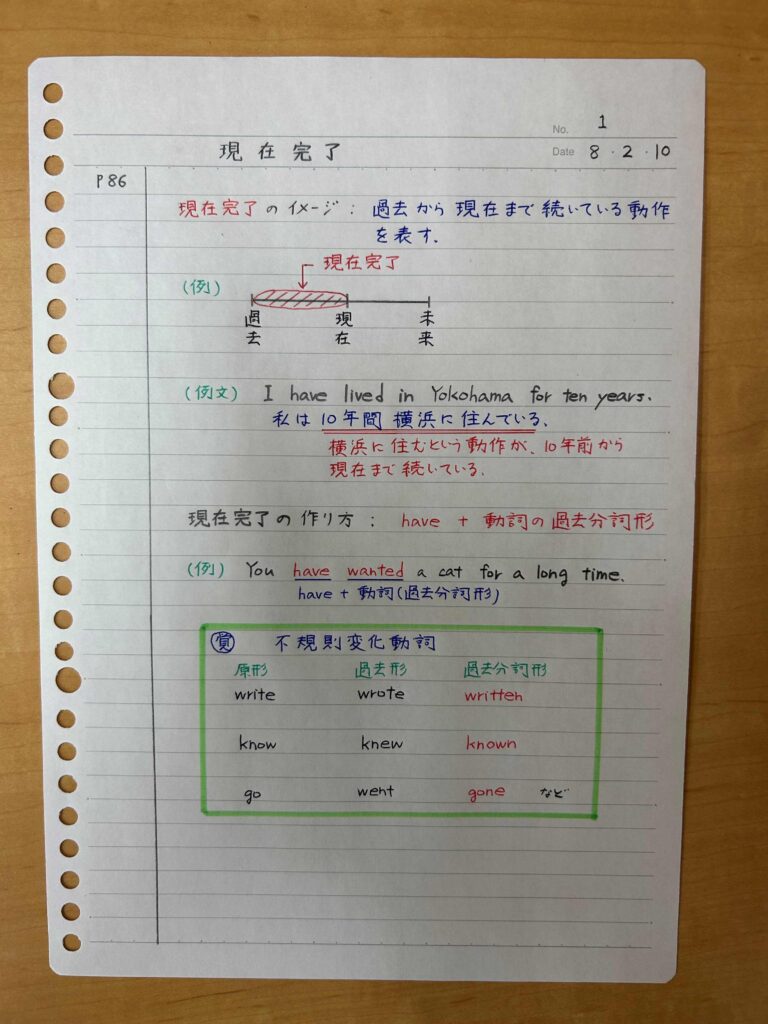 No. 1
現在完了
Date 8・2・10
P86
現在完了のイメージ: 過去から現在まで続いている動作
を表す.
現在完了
(例)
過去 現在 未来
(例文) I have lived in Yokohama for ten years.
私は10年間横浜に住んでいる.
横浜に住むという動作が、10年前から
現在まで続いている.
現在完了の作り方: have + 動詞の過去分詞形
(例) You have wanted a cat for a long time.
have + 動詞(過去分詞形)
不規則変化動詞
原形 過去形 過去分詞形
write wrote written
know knew known
go went gone など